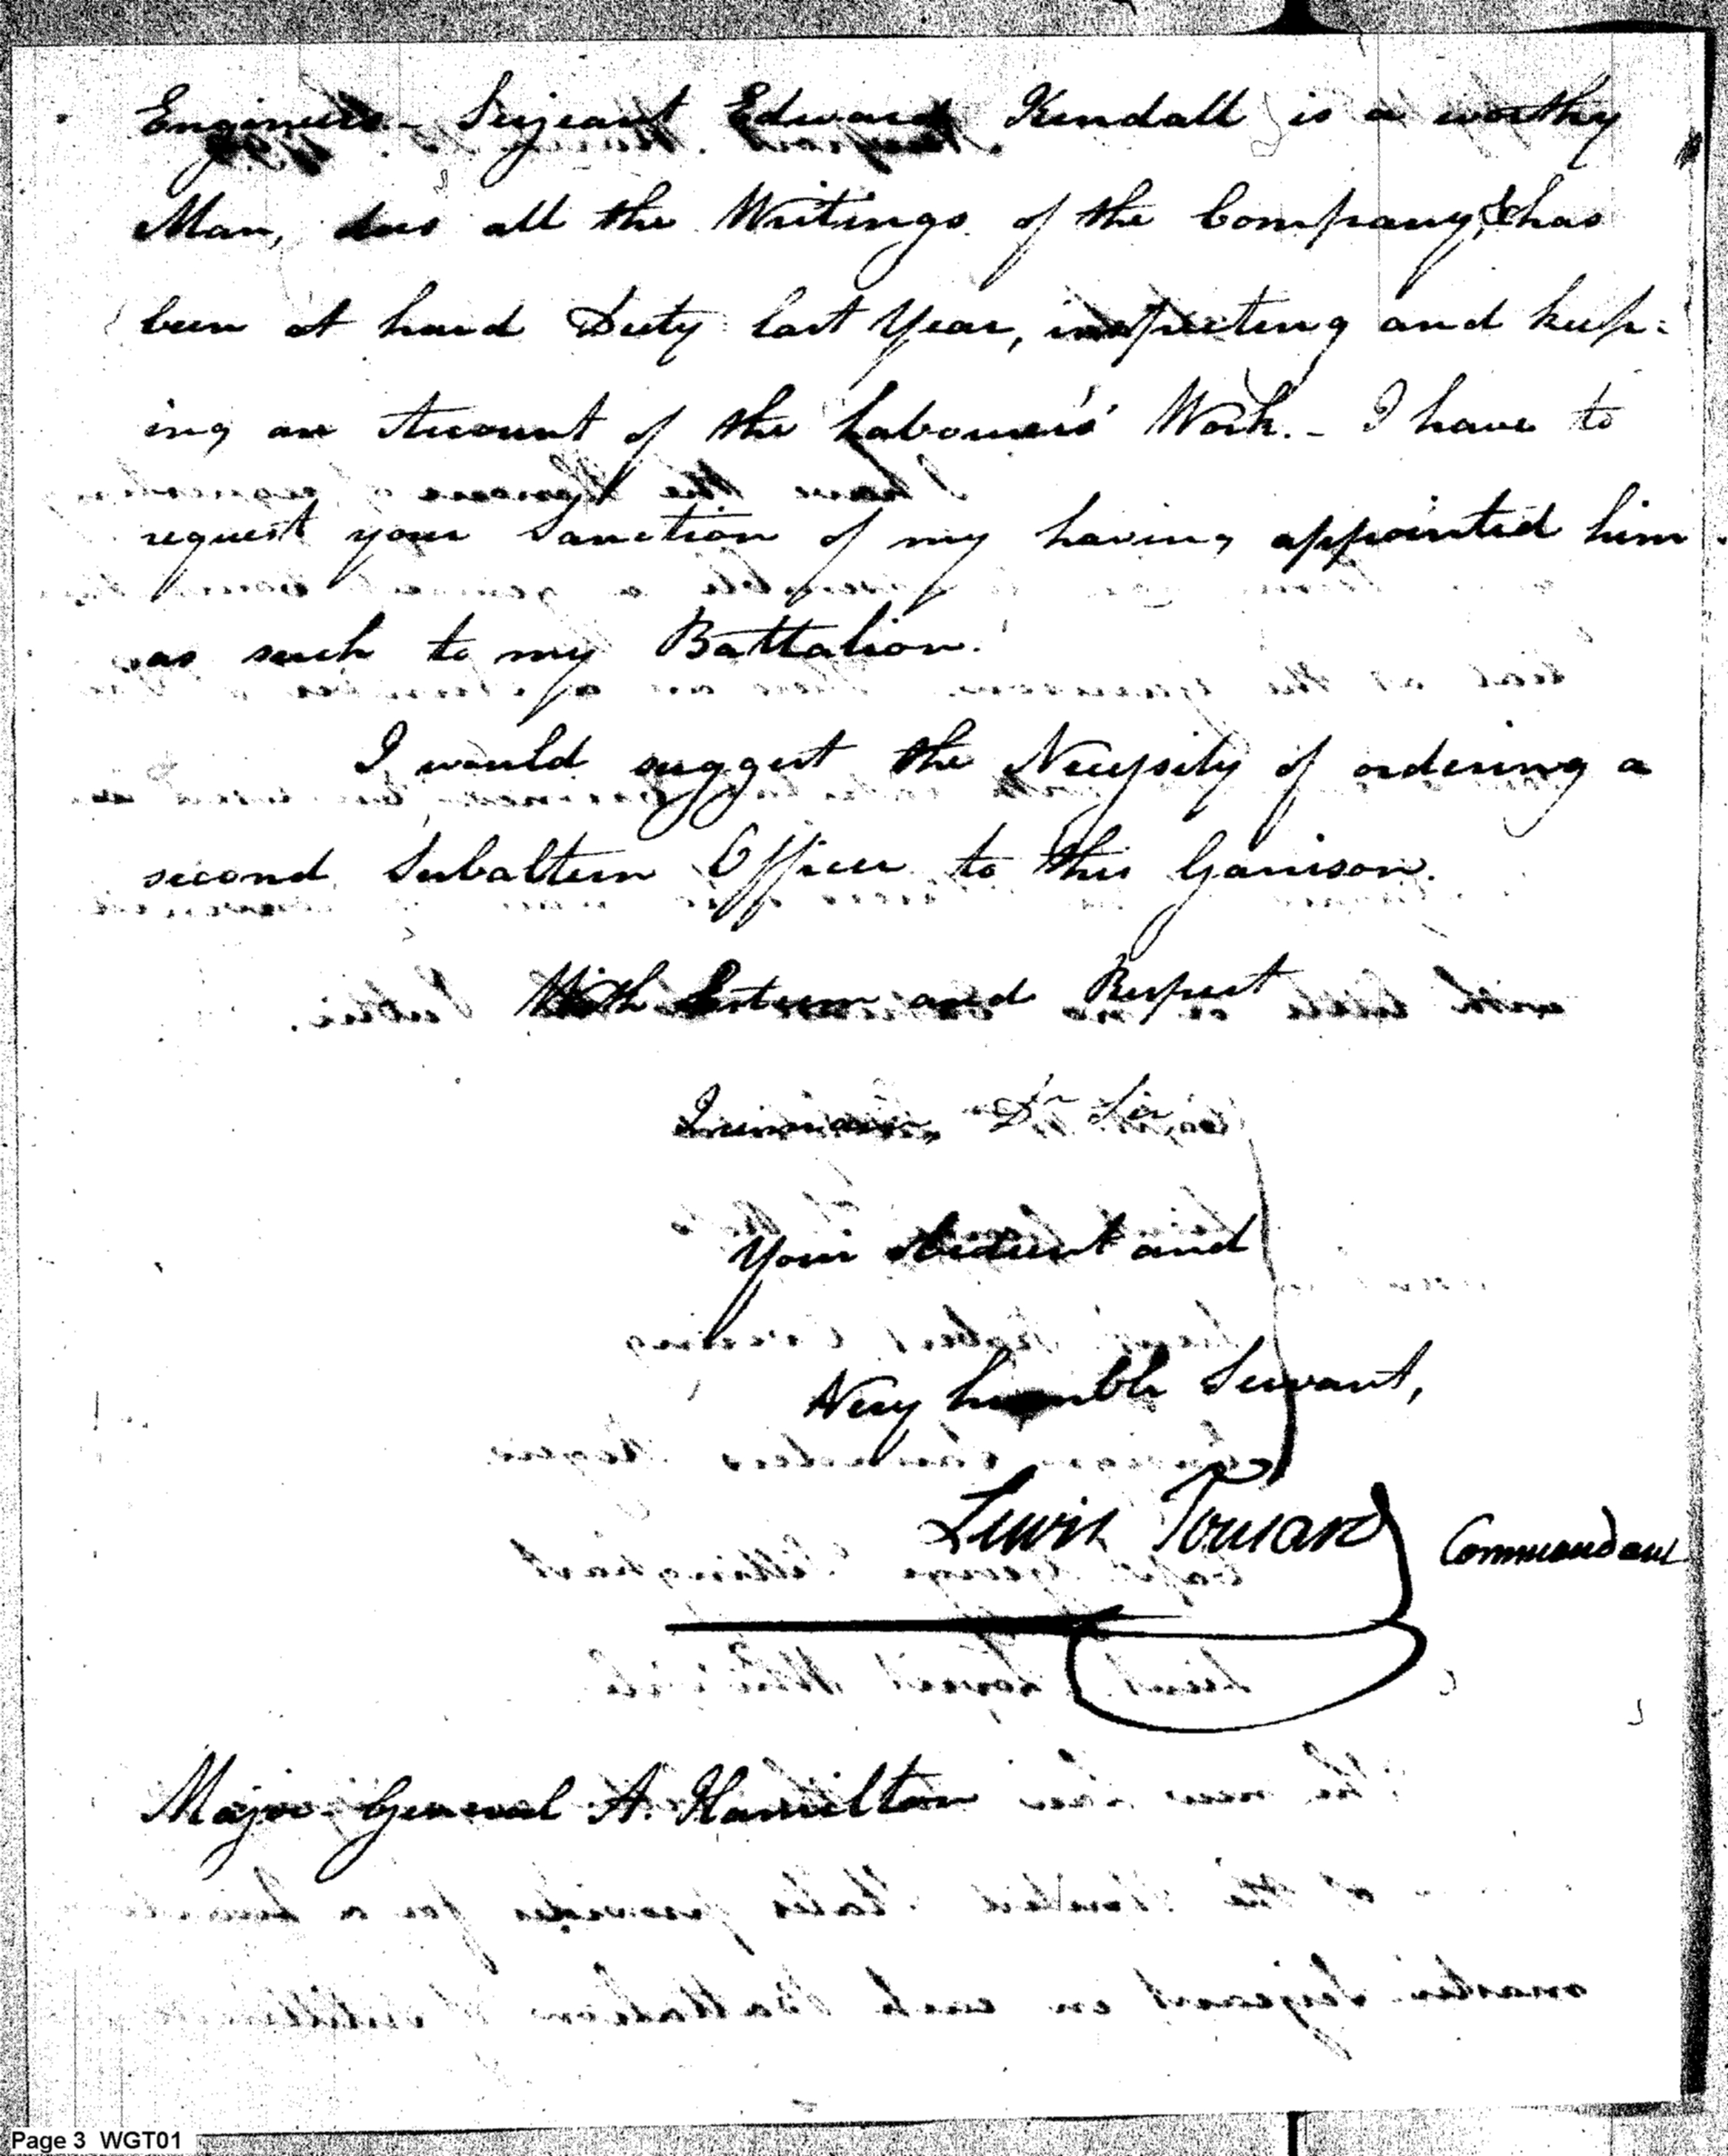 Engineers.- Serjeant Edward Kendall is a worthy
Man, does all the Writings of the Company, & has
been at hard Duty last Year, inspecting and keep=
ing an Account of the Labourers' Work. - I have to
request your Sanction of my having appointed him
as such to my Battalion.
I would suggest the Necessity of ordering a
second Subaltern Officer to this Garrison.
With Esteem and Respect
I remain, Dr Sir
Your obedient and
Very humble Servant,
Lewis Tousard Commandant
Major General A. Hamilton
Page 3 WGT01